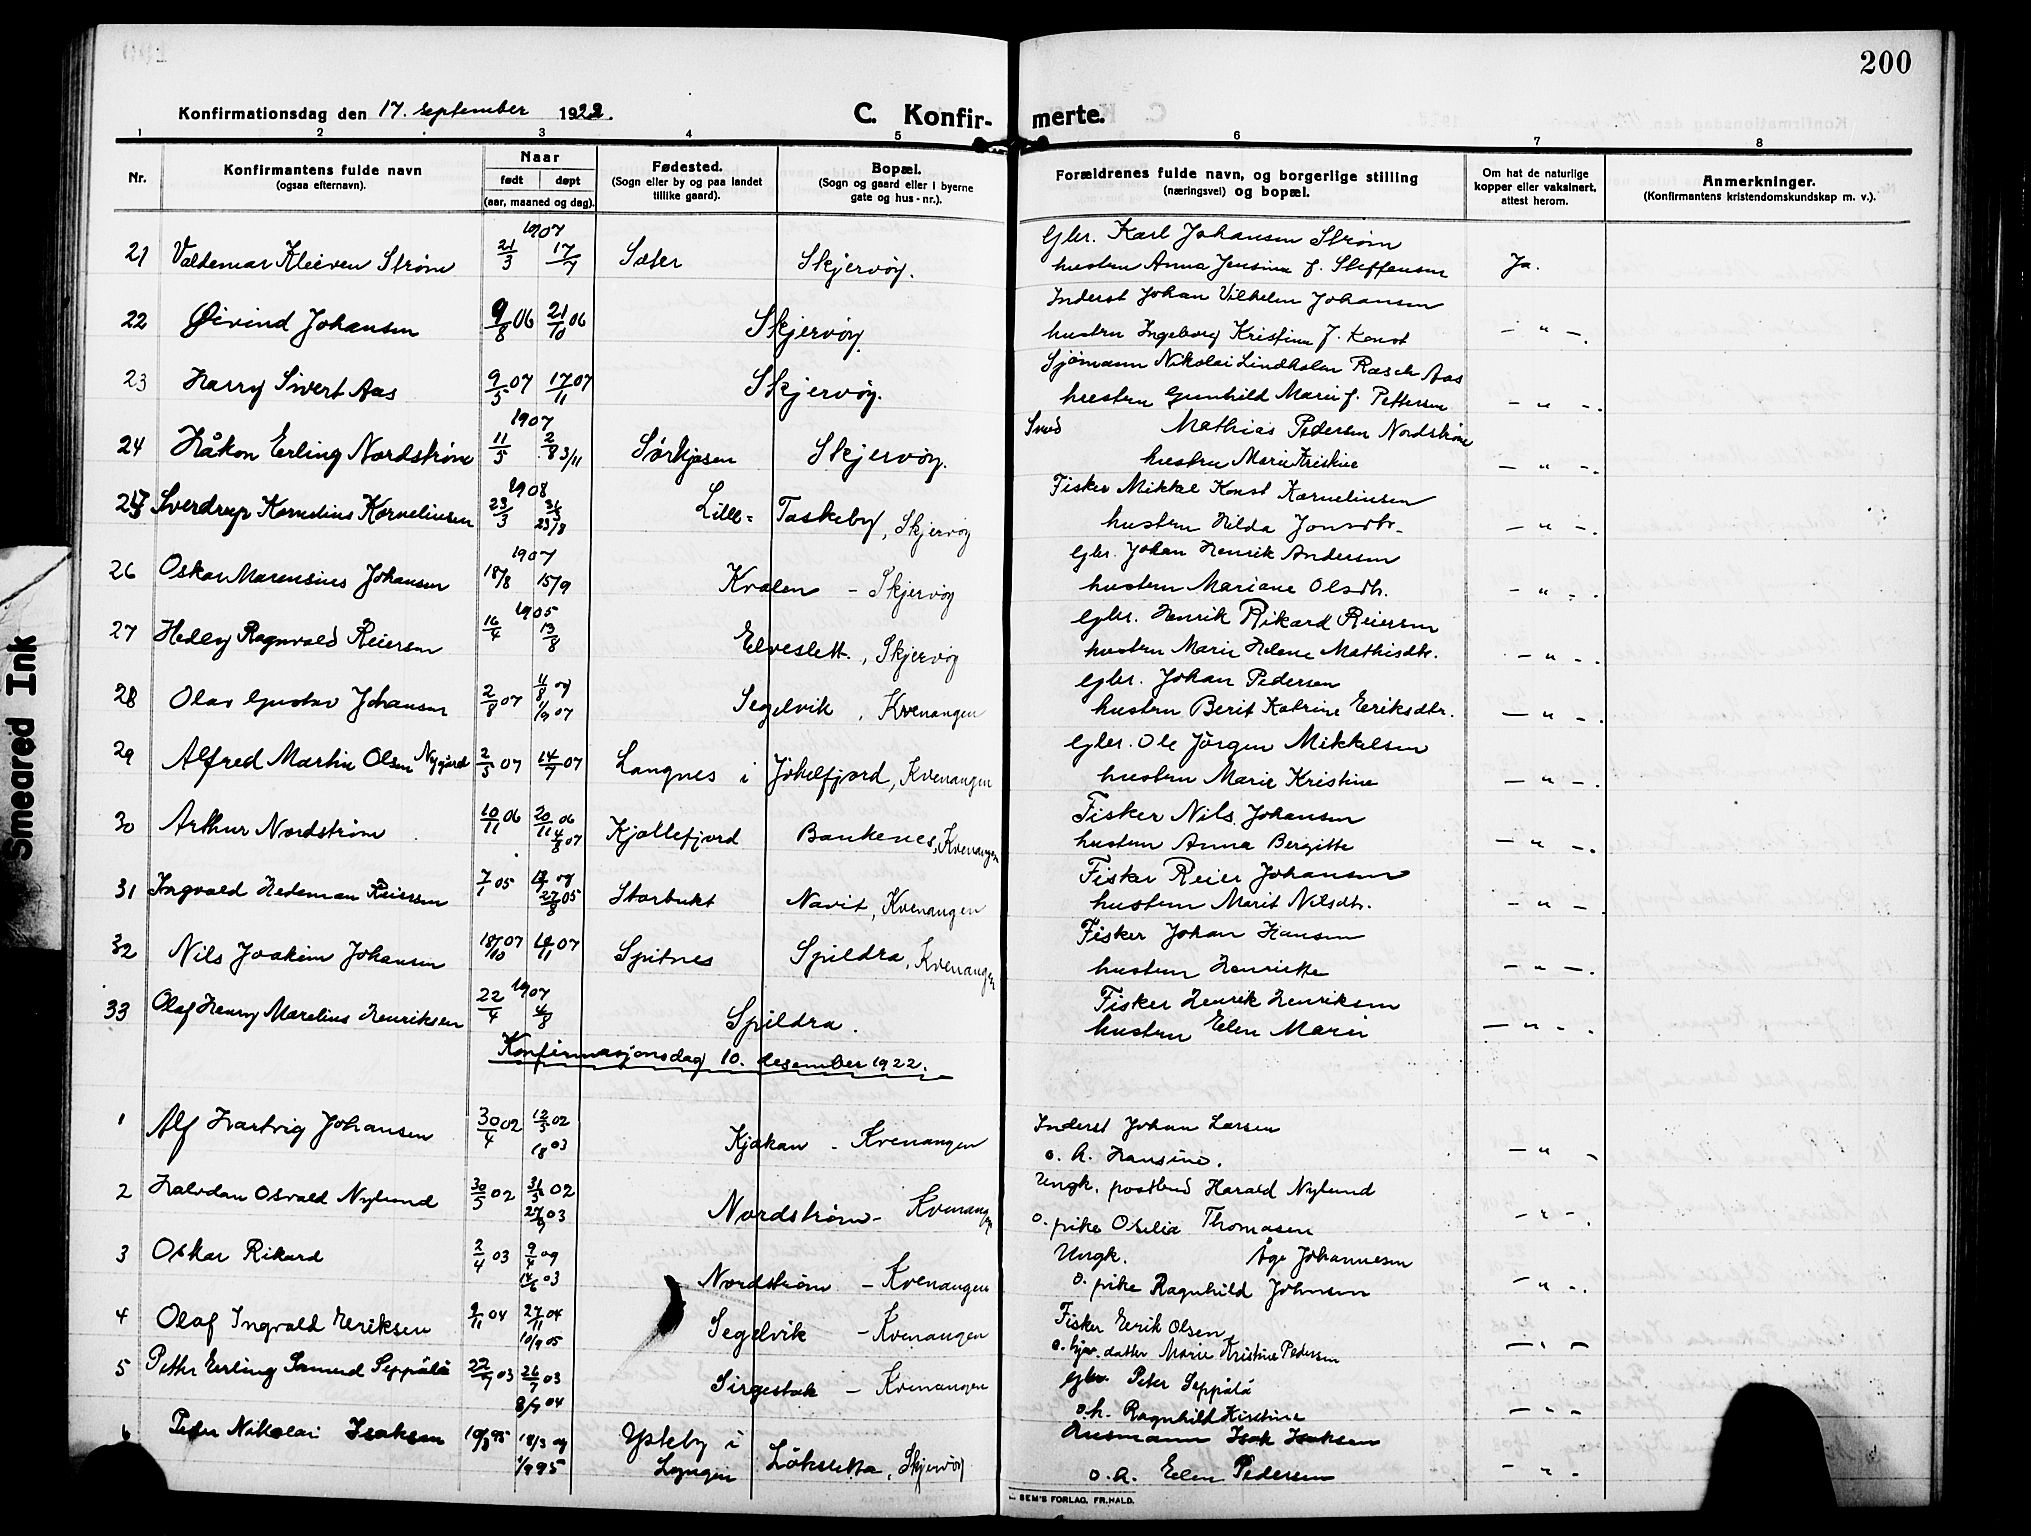 200
Konfirmationsdag den 17. september 1922.
C. Konfir- merte.
1 2 3 4 5 6 7 8
Nr.
Konfirmantens fulde navn
(ogsaa efternavn).
Naar
født døpt
(aar, maaned og dag).
Fødested.
(Sogn eller by og paa landet
tillike gaard).
Bopæl.
(Sogn og gaard eller i byerne
gate og hus-nr.).
Forældrenes fulde navn, og borgerlige stilling
(næringsvei) og bopæl.
Om hat de naturlige
kopper eller vaksinert,
attest herom.
Anmerkninger.
(Konfirmantens kristendomskundskap m. v.).
1907
Gbr. Karl Johansen Strøm
21 Valdemar Kleiven Strøm 21/3 17/7 Sæter Skjervøy. hustru Anna Jensine f. Steffensen Ja.
Inderst Johan Vilhelm Johansen
22 Øivind Johansen 9/8 06 21/10 06 Skjervøy. hustru Ingeborg Kristine f. Konst — " —.
Sjømann Nikolai Lindholm Rasch Aas
23 Harry Sivert Aas 9/5 07 17/11 07 Skjervøy. hustru Gunhild Marie f. Pettersen — " —.
1907
Smed Mathias Pedersen Nordstrøm
24 Håkon Erling Nordstrøm 11/5 2/8 3/11 Sørkjosen Skjervøy. hustru Marie Kristine — " —.
1908
Fisker Mikkel Konst Kornelinsen
25 Sverdrup Kornelius Kornelinsen 23/3 23/8 Lille- Taskeby, Skjervøy hustru Hilda Jonsdtr. — " —.
1907
Gbr. Johan Henrik Andersen
26 Oskar Marensius Johansen 18/8 15/9 Kvalen — Skjervøy hustru Mariane Olsdtr. — " —.
1905
Gbr. Henrik Rikard Reiersen
27 Hedley Ragnvald Reiersen 16/4 13/8 Elveslett, Skjervøy hustru Marie Helene Mathisdtr. — " —.
Gbr. Johan Pedersen
28 Olav Gustav Johansen 2/8 07 11/8 og 1/9 07 Segelvik, Kvenangen hustru Berit Katrine Eriksdtr. — " —.
Gbr. Ole Jørgen Mikkelsen
29 Alfred Martin Olsen Nygård 2/5 07 14/7 07 Langnes i Jøkelfjord, Kvenangen hustru Marie Kristine — " —.
Fisker Nils Johansen
30 Arthur Nordstrøm 10/11 06 20/11 06 4/8 07 Kjøllefjord Bankenes, Kvenangen hustru Anna Bergitte — " —.
Fisker Reier Johansen
31 Ingvald Hedeman Reiersen 7/1 05 og 27/8 05 Storbukt Navit, Kvenangen hustru Marit Nilsdtr. — " —
Fisker Johan Hansen
32 Nils Joakim Johansen 18/10 07 07 Spitnes Spildra, Kvenangen hustru Henriette — " —.
1907
Fisker Henrik Henriksen
33 Olaf Henry Marelius Henriksen 22/4 4/8 Spildra. hustru Elen Marie — " —.
Konfirmasjonsdag 10. desember 1922.
Inderst Johan Larsen
1 Alf Hartvig Johansen 30/4 02 12/5 02 18 03 Kjækan — Kvenangen o. h. Hansine. — " —
Ungk. postbud Harald Nylund
2 Halvdan Osvald Nylund 30/5 02 31/5 02 27/9 03 Nordstrøm — Kvenangen o. pike Otelia Thomasen — " —.
Ungk. Åge Johannesen
3 Oskar Rikard 2/4 03 9/4 og 14/6 03 Nordstrøm — Kvenangen o. pike Ragnhild Johnsen — " —.
Fisker Erik Olsen
4 Olaf Ingvald Eriksen 9/11 04 27/11 04 10/9 05 Segelvik — Kvenangen datter Marie Kristine Pedersen
Gbr. Peter Seppälä
5 Petter Erling Seppälä 22/7 03 26/7 03 8/7 04 Kvenangen o. h. Ragnhild Kirstine — " —
Isak Isaksen
6 Peder Nikolai Isaksen 10/3 95 18/3 og 1/9 95 Ytteby i Lyngen Løksletta, Skjervøy o. h. Elen Pedersen — " —.
SEM'S FORLAG, FR.HALD.
Smeared Ink